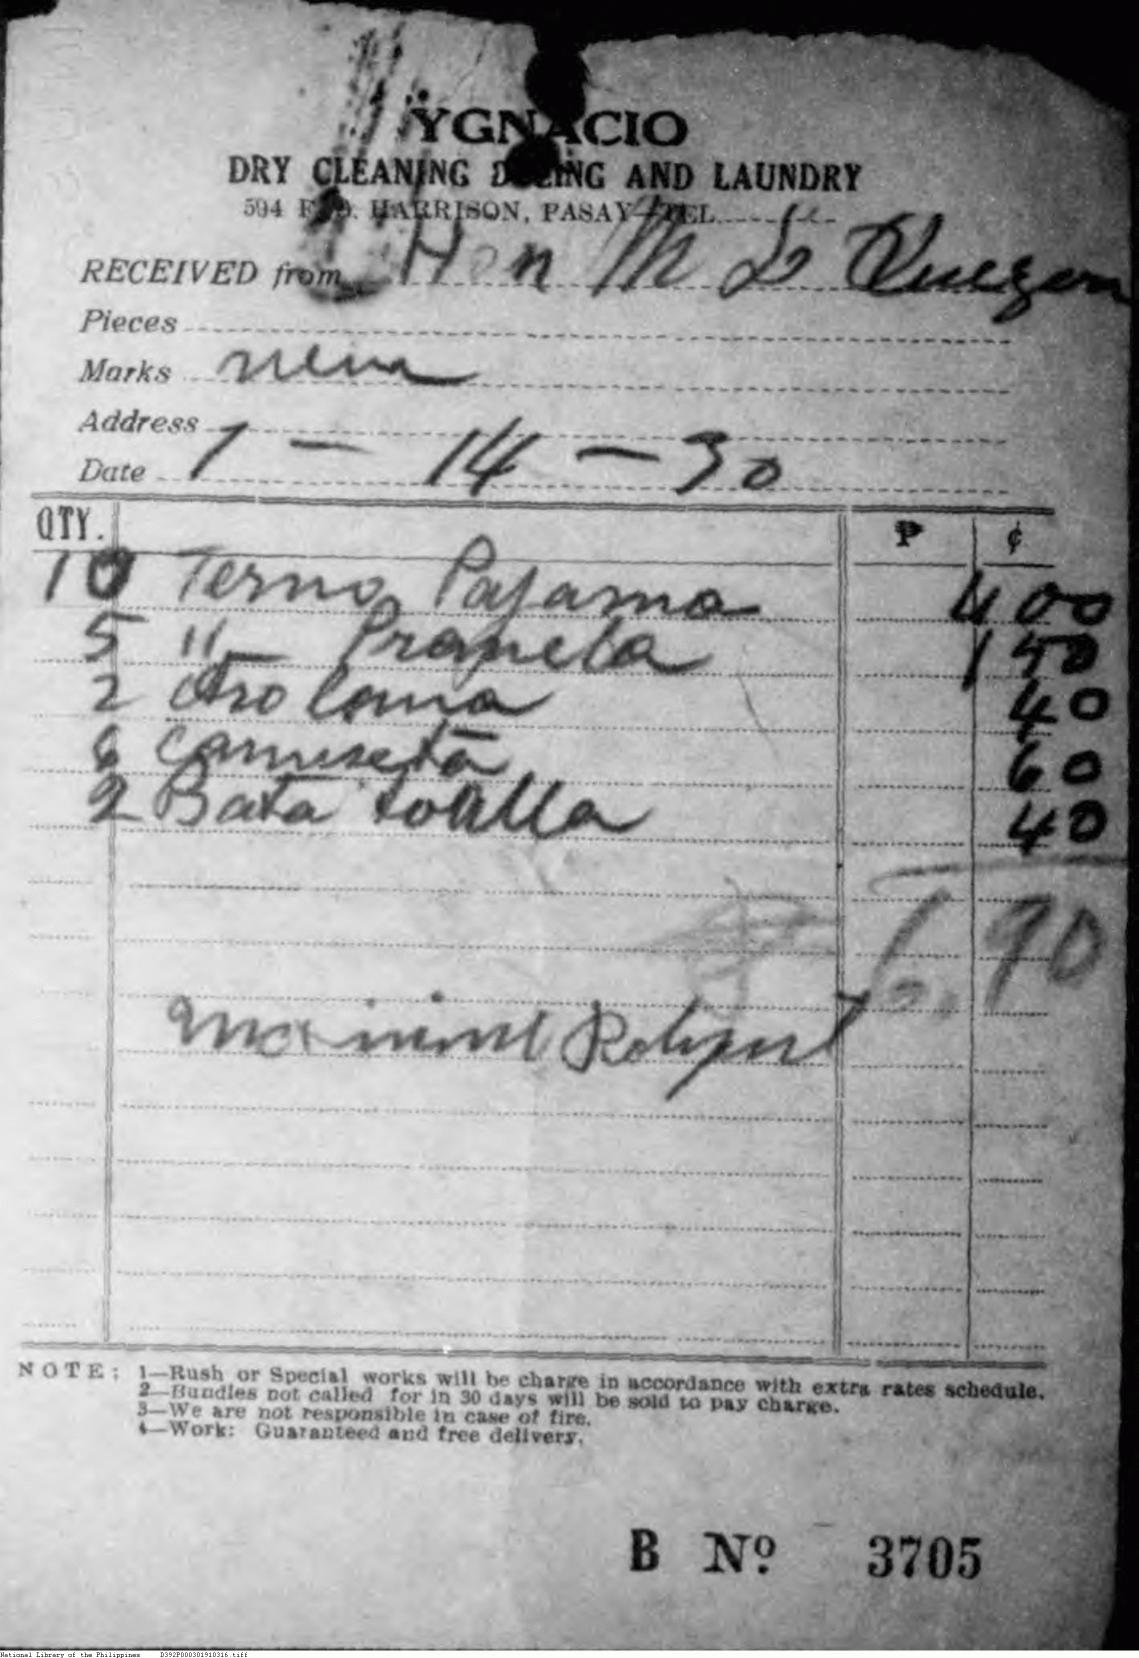 YGNACIO
DRY CLEANING DYEING AND LAUNDRY
594 F. B. HARRISON, PASAY TEL
RECEIVED from Hon M L Quezon
Pieces
Marks
Address
Date 1 - 14 - 30
QTY. ₱ ¢
10 Terno Pajama 4 00
5 " Pranela 1 50
2 40
6 Camiseta 60
2 Bata toalla 40
6.90
NOTE: 1—Rush or Special works will be charge in accordance with extra rates schedule.
2—Bundles not called for in 30 days will be sold to pay charge.
3—We are not responsible in case of fire.
4—Work: Guaranteed and free delivery.
B Nº 3705
National Library of the Philippines D392P000301910316.tiff